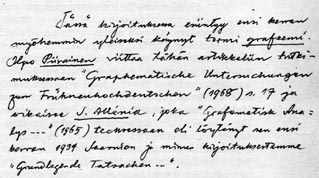 Tässä kirjoituksessa esiintyy ensi kerran
myöhemmin yleiseksi käynyt termi grafeemi.
Ilpo Piirainen viittaa tähän artikkeliin tutki-
muksessaan "Graphematische Untersuchungen
zum Frühneuhochdeutschen" (1968) s. 17 ja
wikaisee S. Allénia, joka "Grafematisk Ana-
lys ---" (1965) teoksessaan oli löytänyt sen ensi
kerran 1934 Saarnion ja minun kirjoituksestamme
"Grundlegende Tatsachen ---".